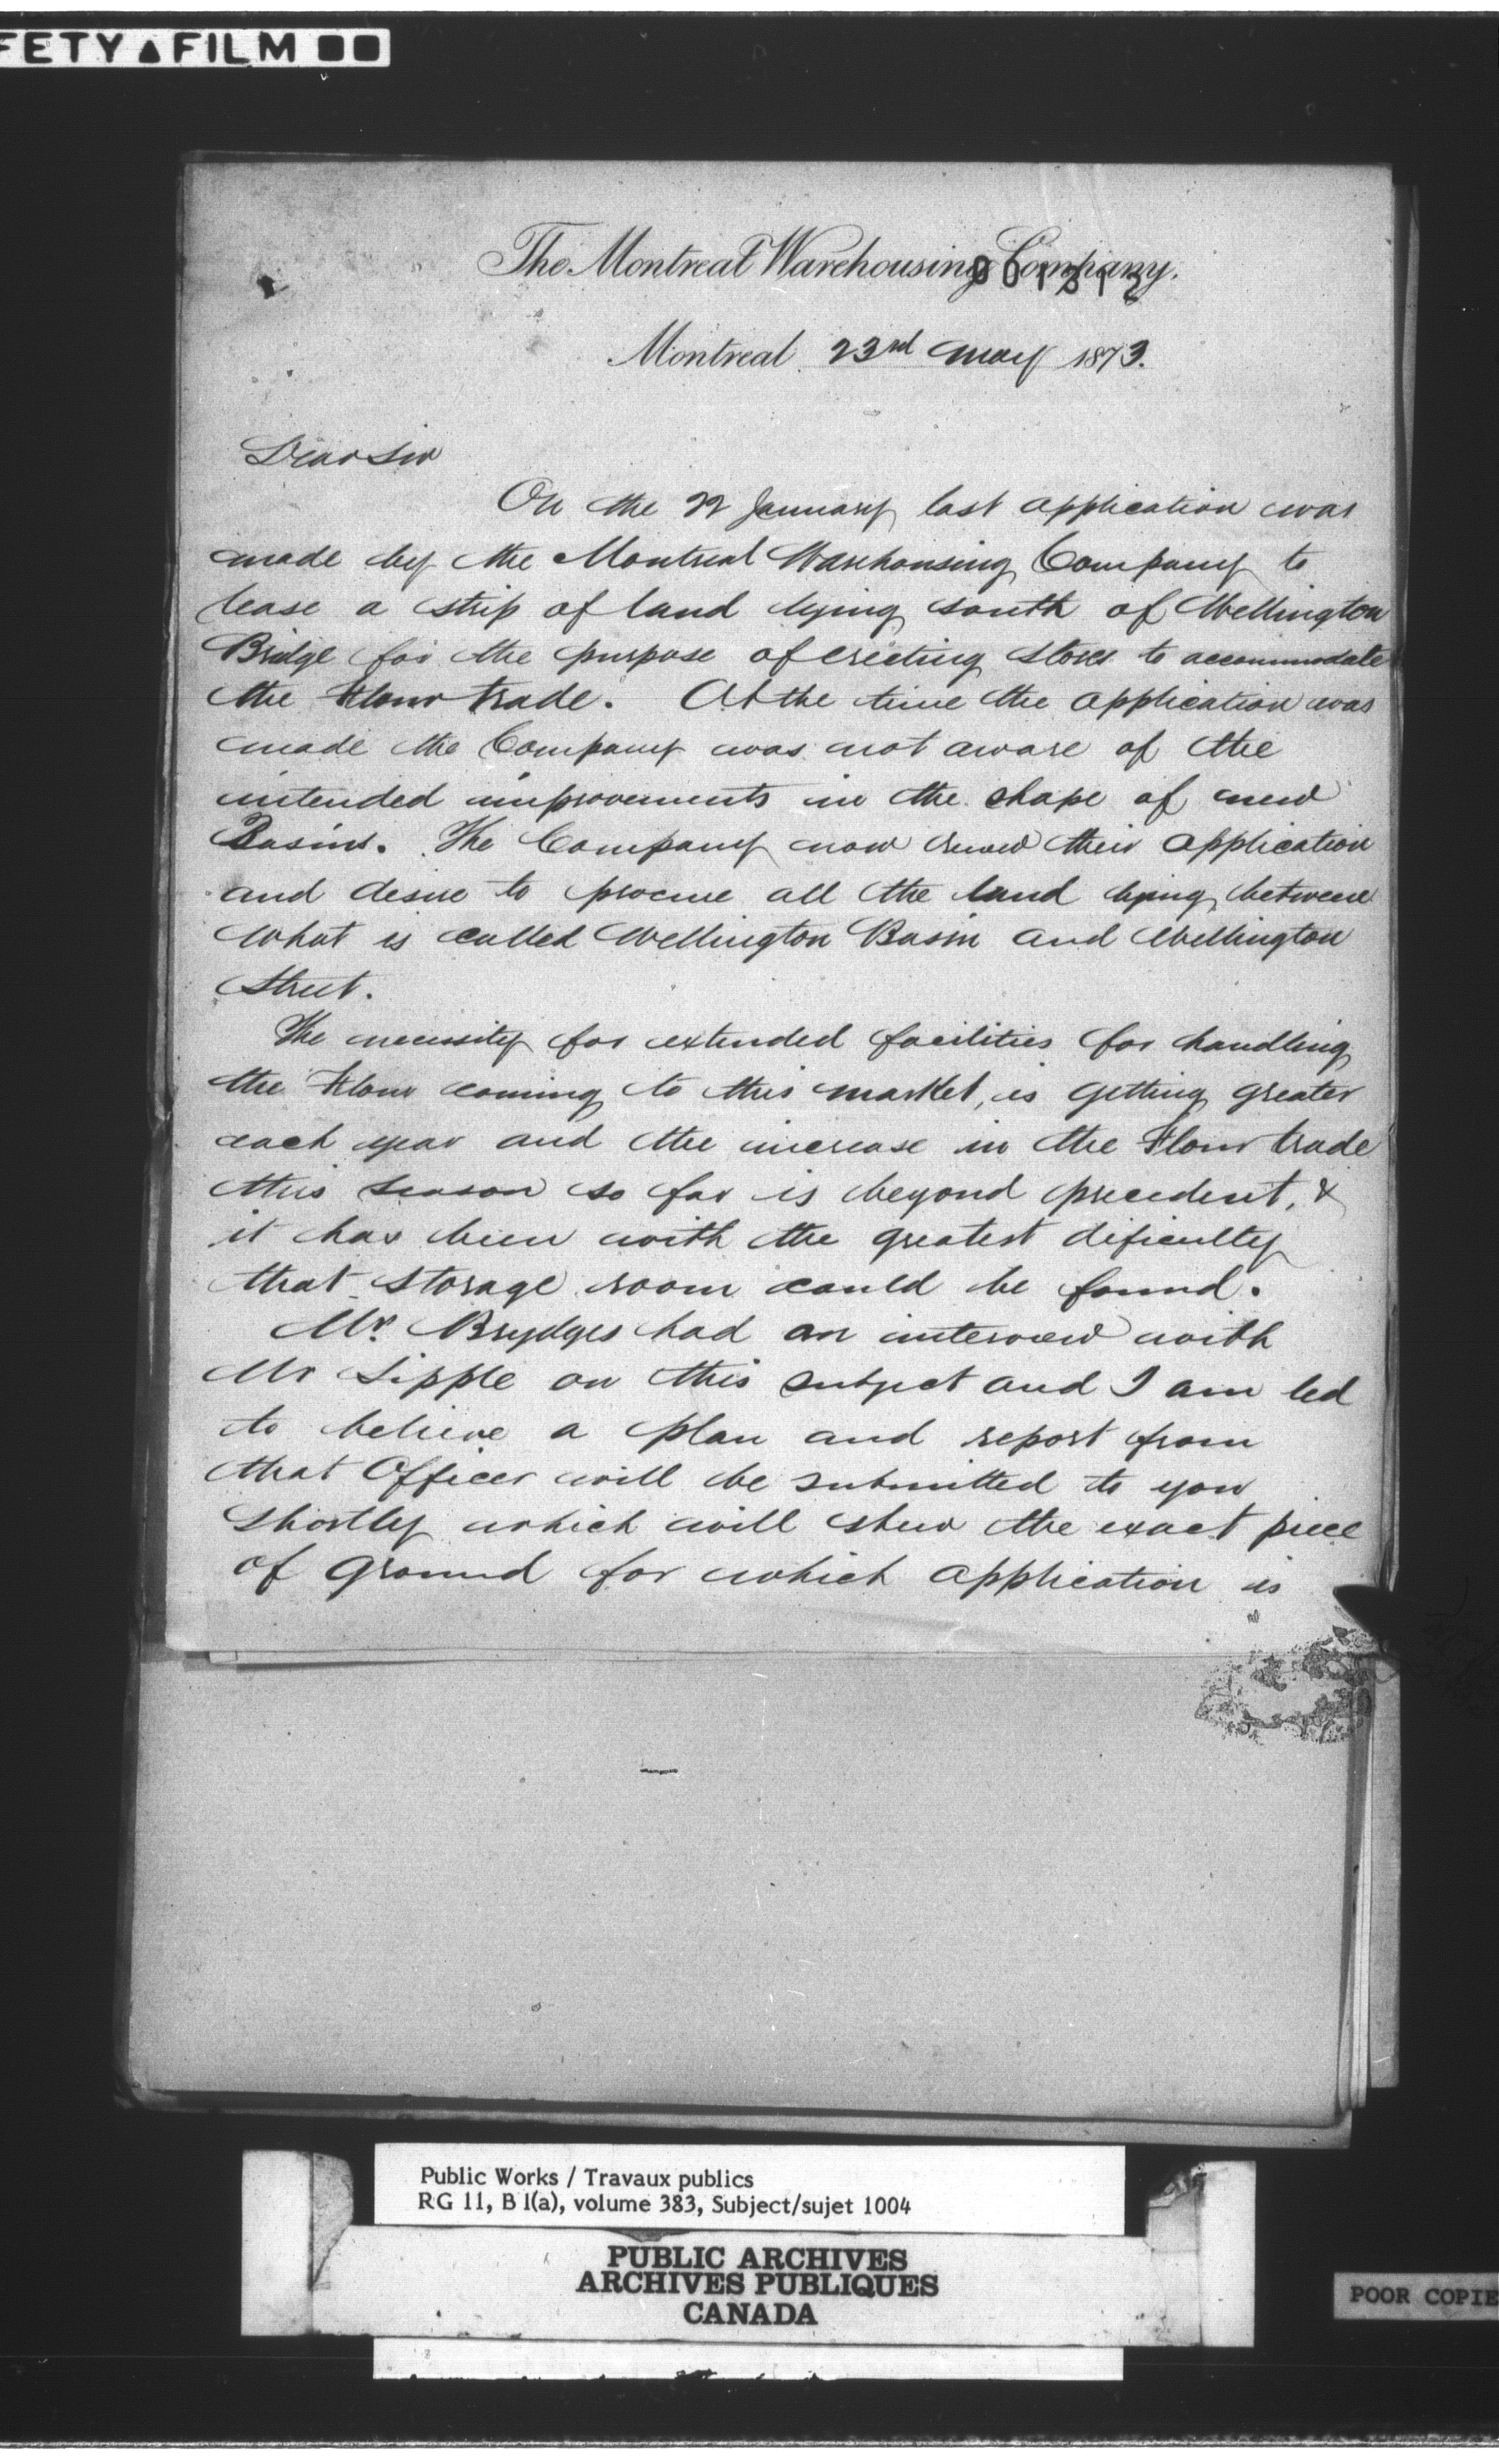 FETY▲FILM
The Montreal Warehousing Company.
Montreal 23rd May 1873.
Dear Sir
On the 22 January last application was
made by the Montreal Warehousing Company to
lease a strip of land lying south of Wellington
Bridge for the purpose of erecting stores to accommodate
the Flour trade. At the time the application was
made the Company was not aware of the
intended improvements in the shape of new
Basins. The Company now renew their application
and desire to procure all the land lying between
what is called Wellington Basin and Wellington
Street.
The necessity for extended facilities for handling
the Flour coming to this market, is getting greater
each year and the increase in the Flour trade
this season so far is beyond precedent, &
it has been with the greatest dificulty
that storage room could be found.
Mr. Brydges had an interview with
Mr Sipple on this subject and I am led
to believe a plan and report from
that Officer will be submitted to you
shortly which will shew the exact piece
of ground for which application is
Public Works / Travaux publics
RG 11, B 1(a), volume 383, Subject/sujet 1004
PUBLIC ARCHIVES
ARCHIVES PUBLIQUES
CANADA
POOR COPIE